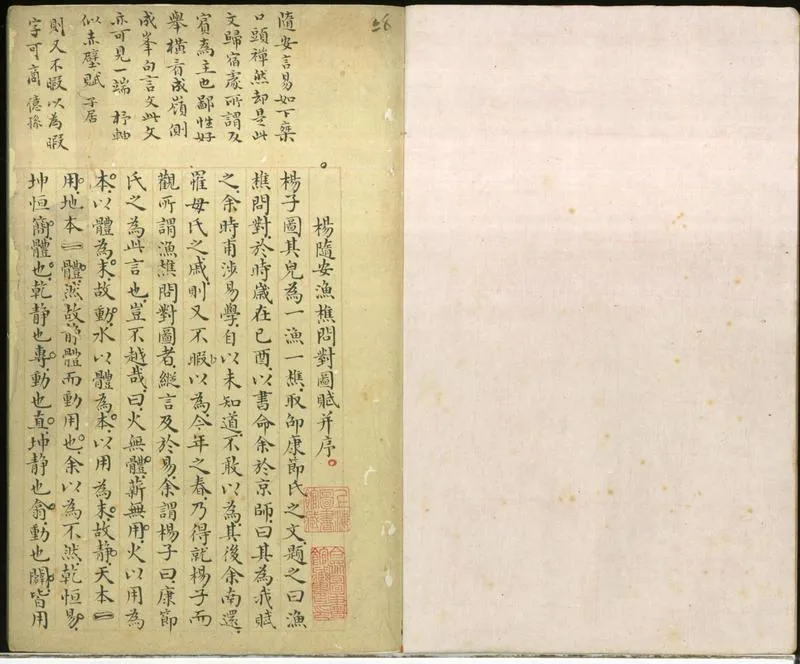 隨安言易如下乘
口頭禪然却是此
文歸宿處所謂反
賓為主也鄙性好
舉橫看成嶺側
成峯句言文此文
亦可見一端 杼軸
似赤壁賦 子居
則又不暇以為暇
字可商 億孫
楊隨安漁樵問對圖賦并序
楊子圖其兒為一漁一樵取邵康節氏之文題之曰漁
樵問對於時歲在己酉以書命余於京師曰其為我賦
之余時甫涉易學自以未知道不敢以為其後余南還
罹母氏之戚則又不暇以為今年之春乃得就楊子而
觀所謂漁樵問對圖者縱言及於易余謂楊子曰康節
氏之為此言也豈不越哉曰火無體薪無用火以用為
本以體為末故動水以體為本以用為末故靜天本一
用地本一體然故靜體而動用也余以為不然乾恒易
坤恒簡體也乾靜也專動也直坤靜也翕動也闢皆用